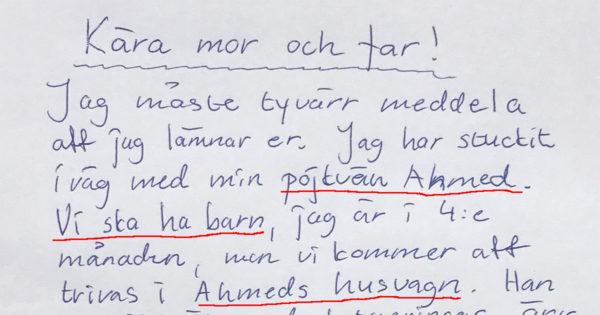 Kära mor och far!
Jag måste tyvärr meddela
att jag lämnar er. Jag har stuckit
iväg med min pojkvän Ahmed.
Vi ska ha barn, jag är i 4:e
månaden, men vi kommer att
trivas i Ahmeds husvagn. Han